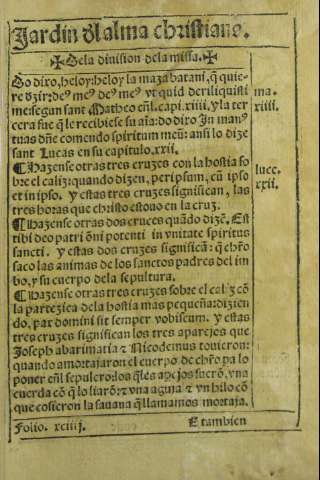 Jardin dl alma christiano.
✠ De la diuision dela missa. ✠
do dixo, heloy: heloy lamazabatani, q̃ quie-
re dezir: de⁹ me⁹ de⁹ me⁹ vt quid deriliquisti
me: segun sant Matheo eñl. capi. xiiij. y la ter
cera fue q̃ le recibiese su aĩa: do dixo In man⁹
tuas dñe comendo spiritum meũ: ansi lo dize
sant Lucas en su capitulo. xxii.
¶ Hazense otras tres cruzes con la hostia so
bre el caliz: quando dizen, per ipsum, cũ ipso
et in ipso. y estas tres cruzes significan, las
tres horas que christo estouo en la cruz.
¶ Hazense otras dos cruces quãdo dizẽ. Est
tibi deo patri oñipotenti in vnitate spiritus
sancti. y estas dos cruzes significã: q̃ chr̃o
saco las animas de los sanctos padres del im
bo, y su cuerpo dela sepultura.
¶ Hazense otras tres cruzes sobre el caliz cõ
la partezica dela hostia mas pequeña: dizien
do, pax domini sit semper vobiscum. y estas
tres cruzes significan los tres aparejos que
Joseph abarimatia ⁊ Nicodemus touieron:
quando amortajaron el cuerpo de chr̃o pa lo
poner eñl sepulcro: los q̃les
cuerda cõ q̃ lo liarõ: ⁊ vna aguja ⁊ vn hilo cõ
que cosieron la sauana q̃ llamamos mortaja.
ma.
xiiii.
lucc.
xxii.
Folio. xciiij.
E tambien